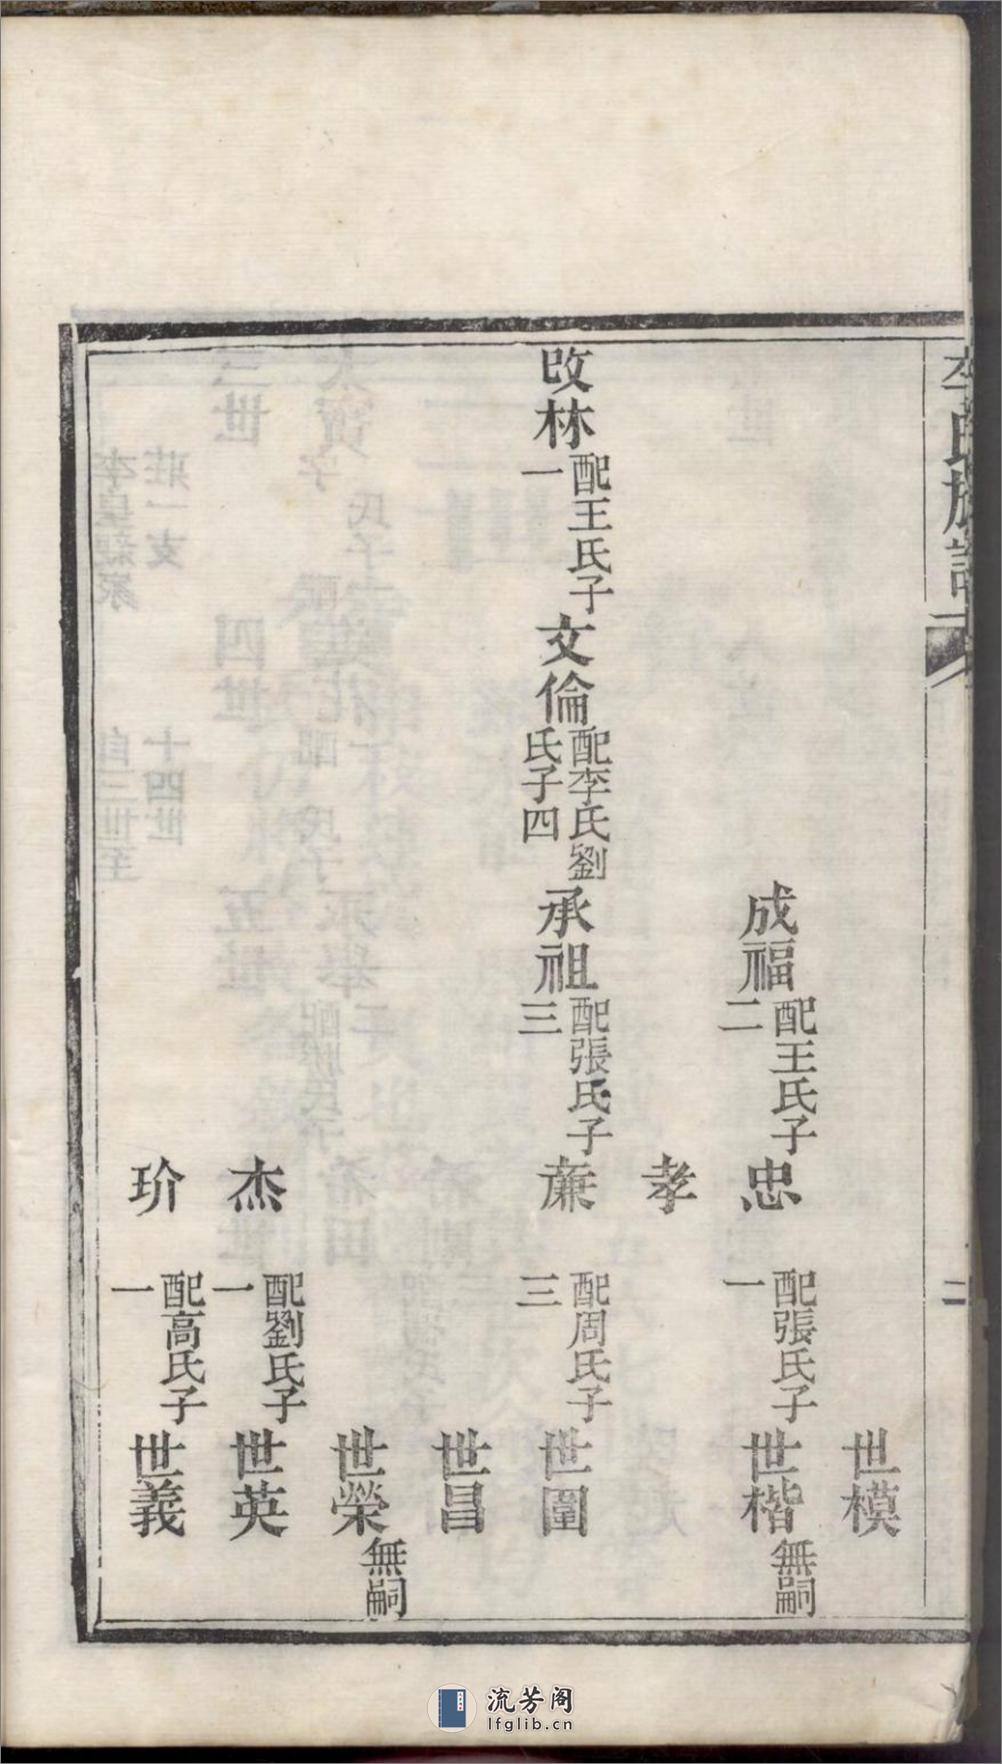 李氏族譜
二
世模
成福配王氏子二
忠配張氏子一
世楷無嗣
孝
改林配王氏子一
文倫配李氏劉氏子四
承祖配張氏子三
亷配周氏子三
世圍
世昌
世榮無嗣
杰配劉氏子一
世英
玠配高氏子一
世義
流芳阁
lfglib.cn